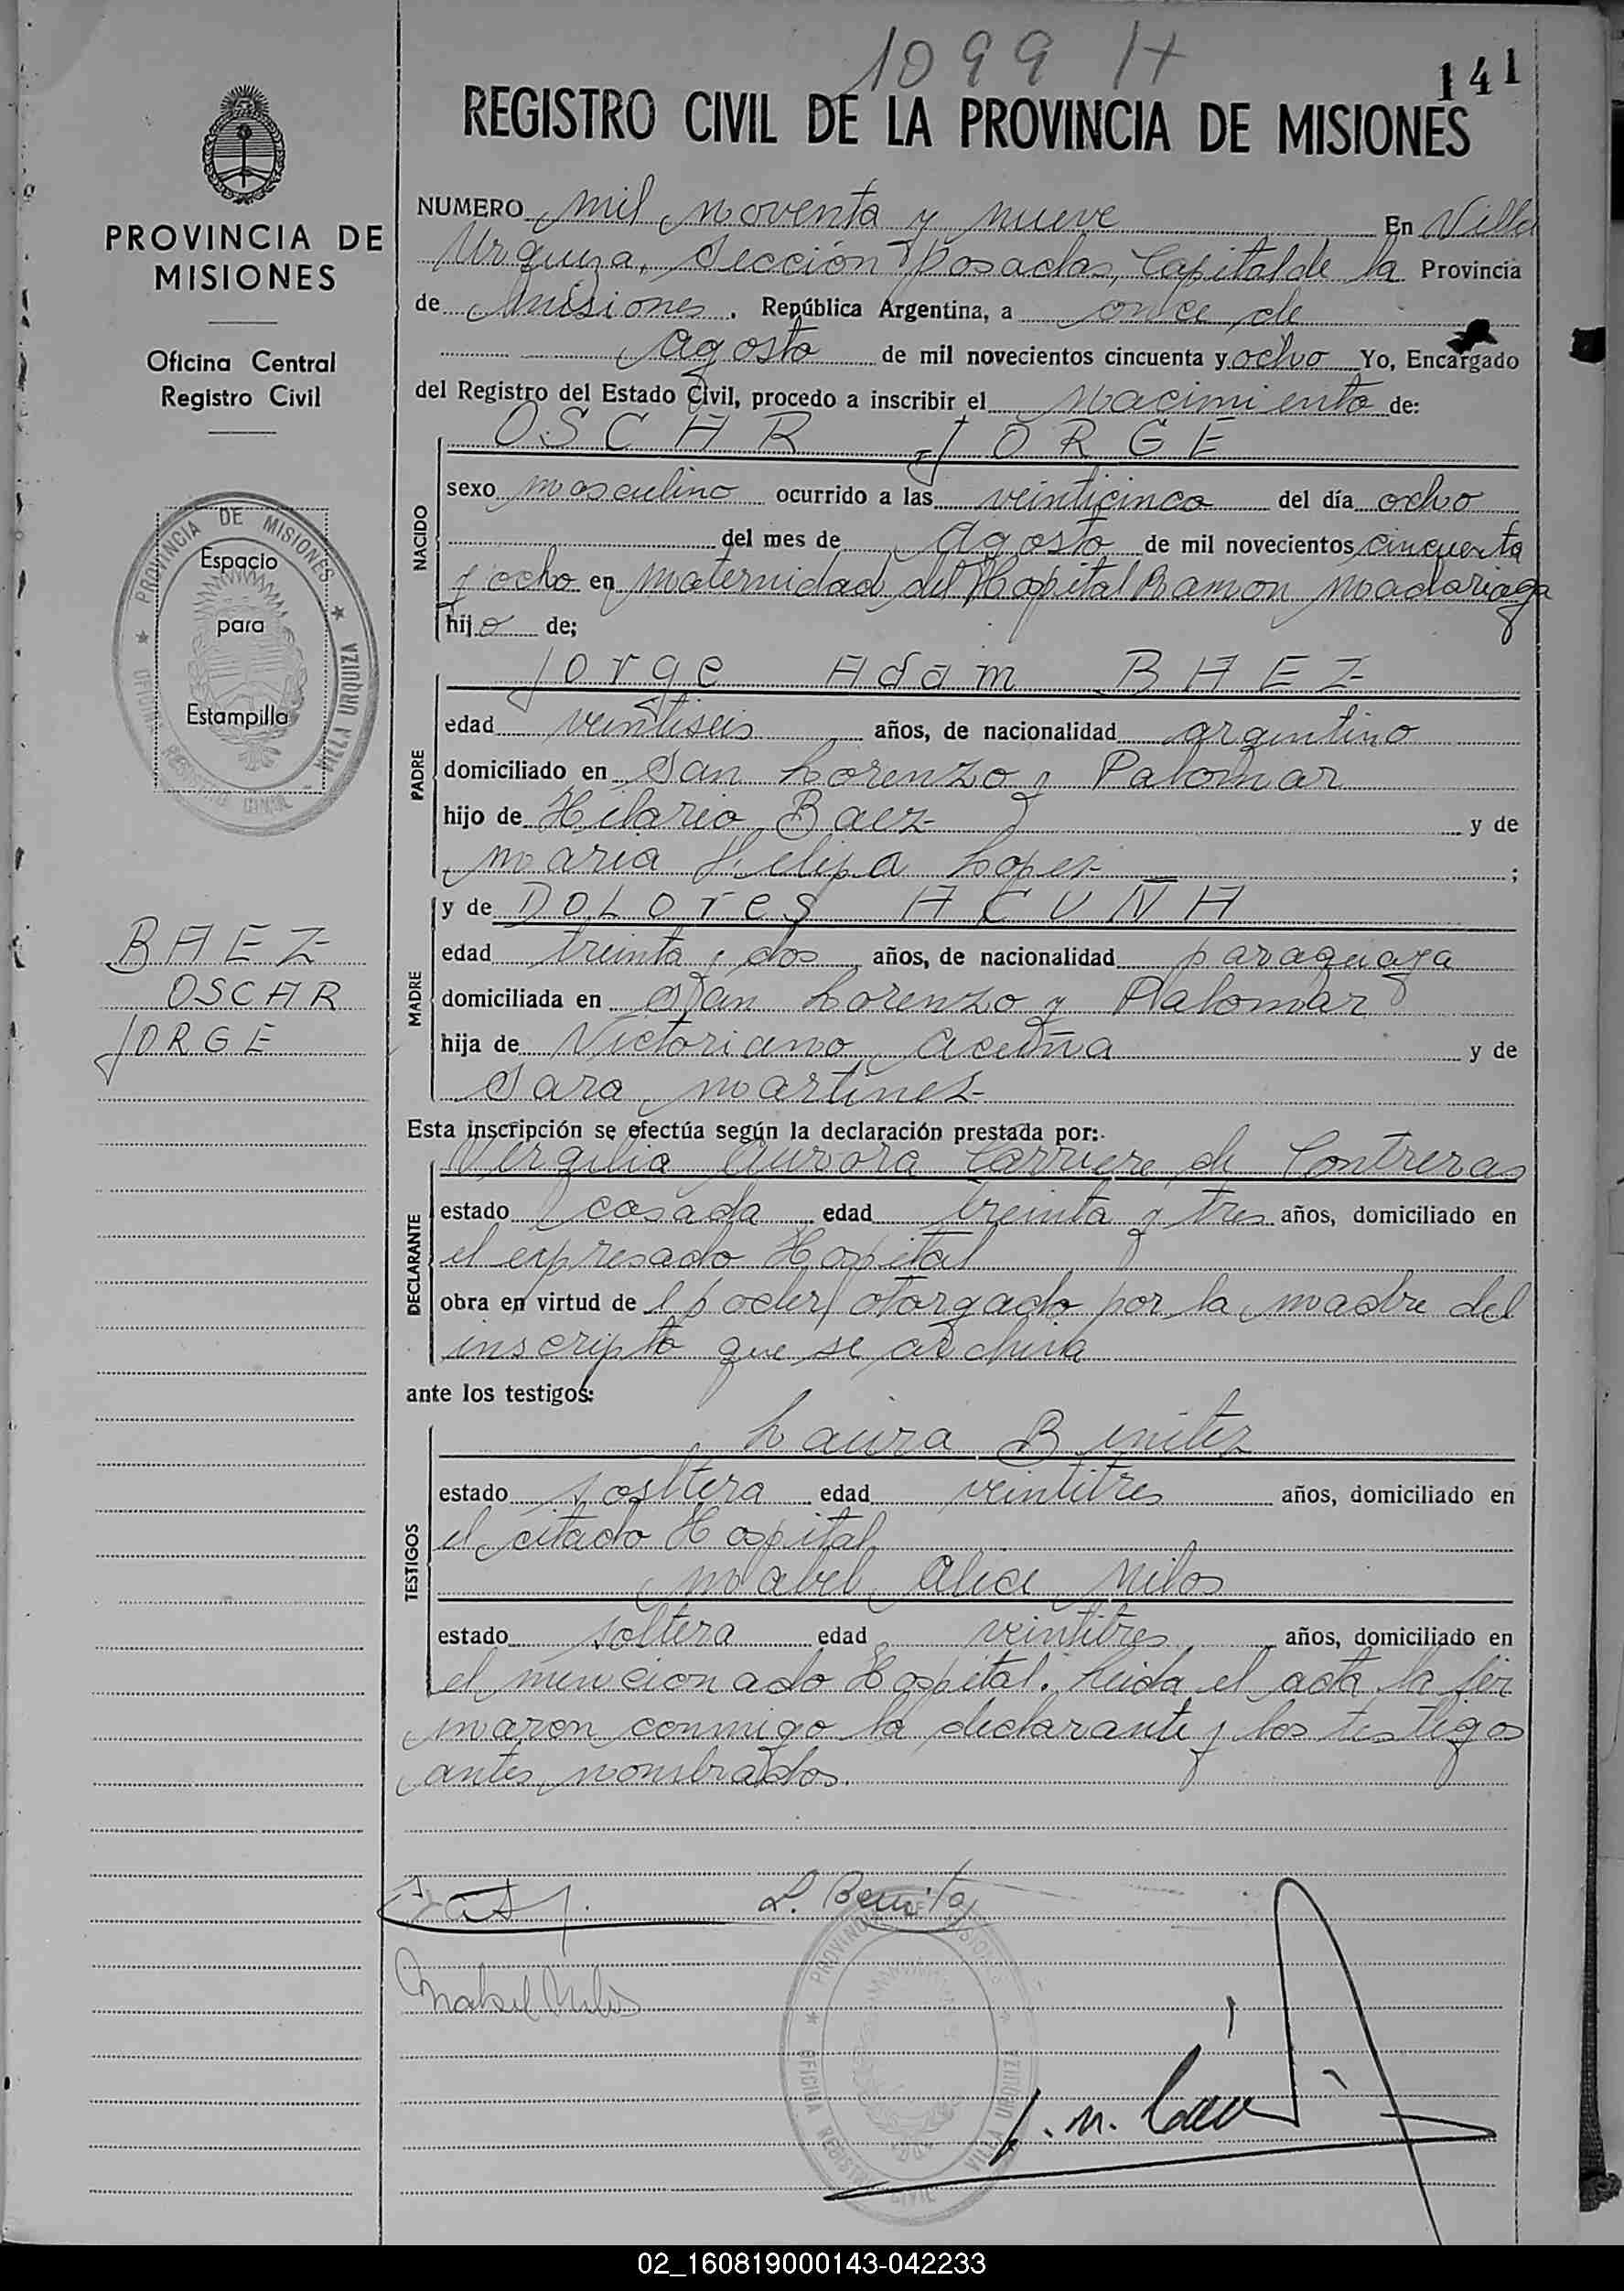 1099 H
141
REGISTRO CIVIL DE LA PROVINCIA DE MISIONES
PROVINCIA DE
MISIONES
Oficina Central
Registro Civil
PROVINCIA DE MISIONES
Espacio
para
Estampilla
VILLA URQUIZA
BAEZ
OSCAR
JORGE
NUMERO mil noventa y nueve En Villa
Urquiza, Sección Posadas, Capital de la Provincia
de Misiones. República Argentina, a once de
Agosto de mil novecientos cincuenta y ocho Yo, Encargado
del Registro del Estado Civil, procedo a inscribir el Nacimiento de:
OSCAR JORGE
NACIDO
sexo masculino ocurrido a las veinticinco del día ocho
del mes de Agosto de mil novecientos cincuenta
y ocho en Maternidad del Hospital Ramon Madariaga
hijo de;
Jorge Adam BAEZ
PADRE
edad veintiseis años, de nacionalidad argentino
domiciliado en San Lorenzo y Palomar
hijo de Hilario Baez y de
Maria Felipa Lopez ;
y de DoLores ACUÑA
MADRE
edad treinta y dos años, de nacionalidad paraguaya
domiciliada en San Lorenzo y Palomar
hija de Victoriano Acuña y de
Sara Martinez
Esta inscripción se efectúa según la declaración prestada por:
Virgilia Aurora Carriere de Contreras
DECLARANTE
estado casada edad treinta y tres años, domiciliado en
el expresado Hospital
obra en virtud de l poder otorgado por la madre del
inscripto que se archiva
ante los testigos:
Laura Benitez
TESTIGOS
estado soltera edad veintitres años, domiciliado en
el citado Hospital
Mabel Alice Milos
estado soltera edad veintitres años, domiciliado en
el mencionado Hospital. Leida el acta la fir
maron conmigo la declarante y los testigos
antes nombrados.
L. Benitez
Mabel Milos
PROVINCIA DE MISIONES
OFICINA REGISTRO CIVIL
VILLA URQUIZA
02_160819000143-042233